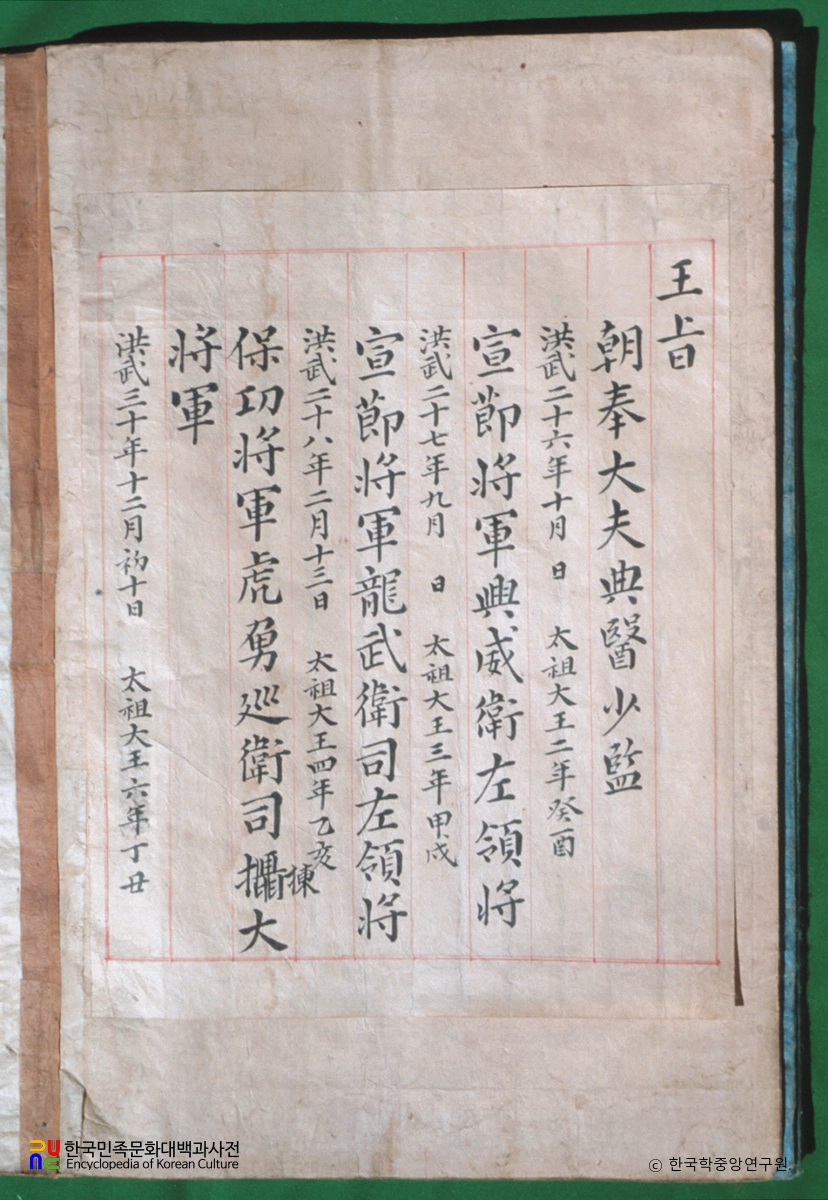 王旨
朝奉大夫典醫少監
洪武二十六年十月 日 太祖大王二年癸酉
宣節將軍興威衛左領將
洪武二十七年九月 日 太祖大王三年甲戌
宣節將軍龍武衛司左領將
洪武二十八年二月十三日 太祖大王四年乙亥
保功將軍虎勇巡衛司攝大
揀
將軍
洪武三十年十二月初十日 太祖大王六年丁丑
한국민족문화대백과사전
Encyclopedia of Korean Culture
© 한국학중앙연구원